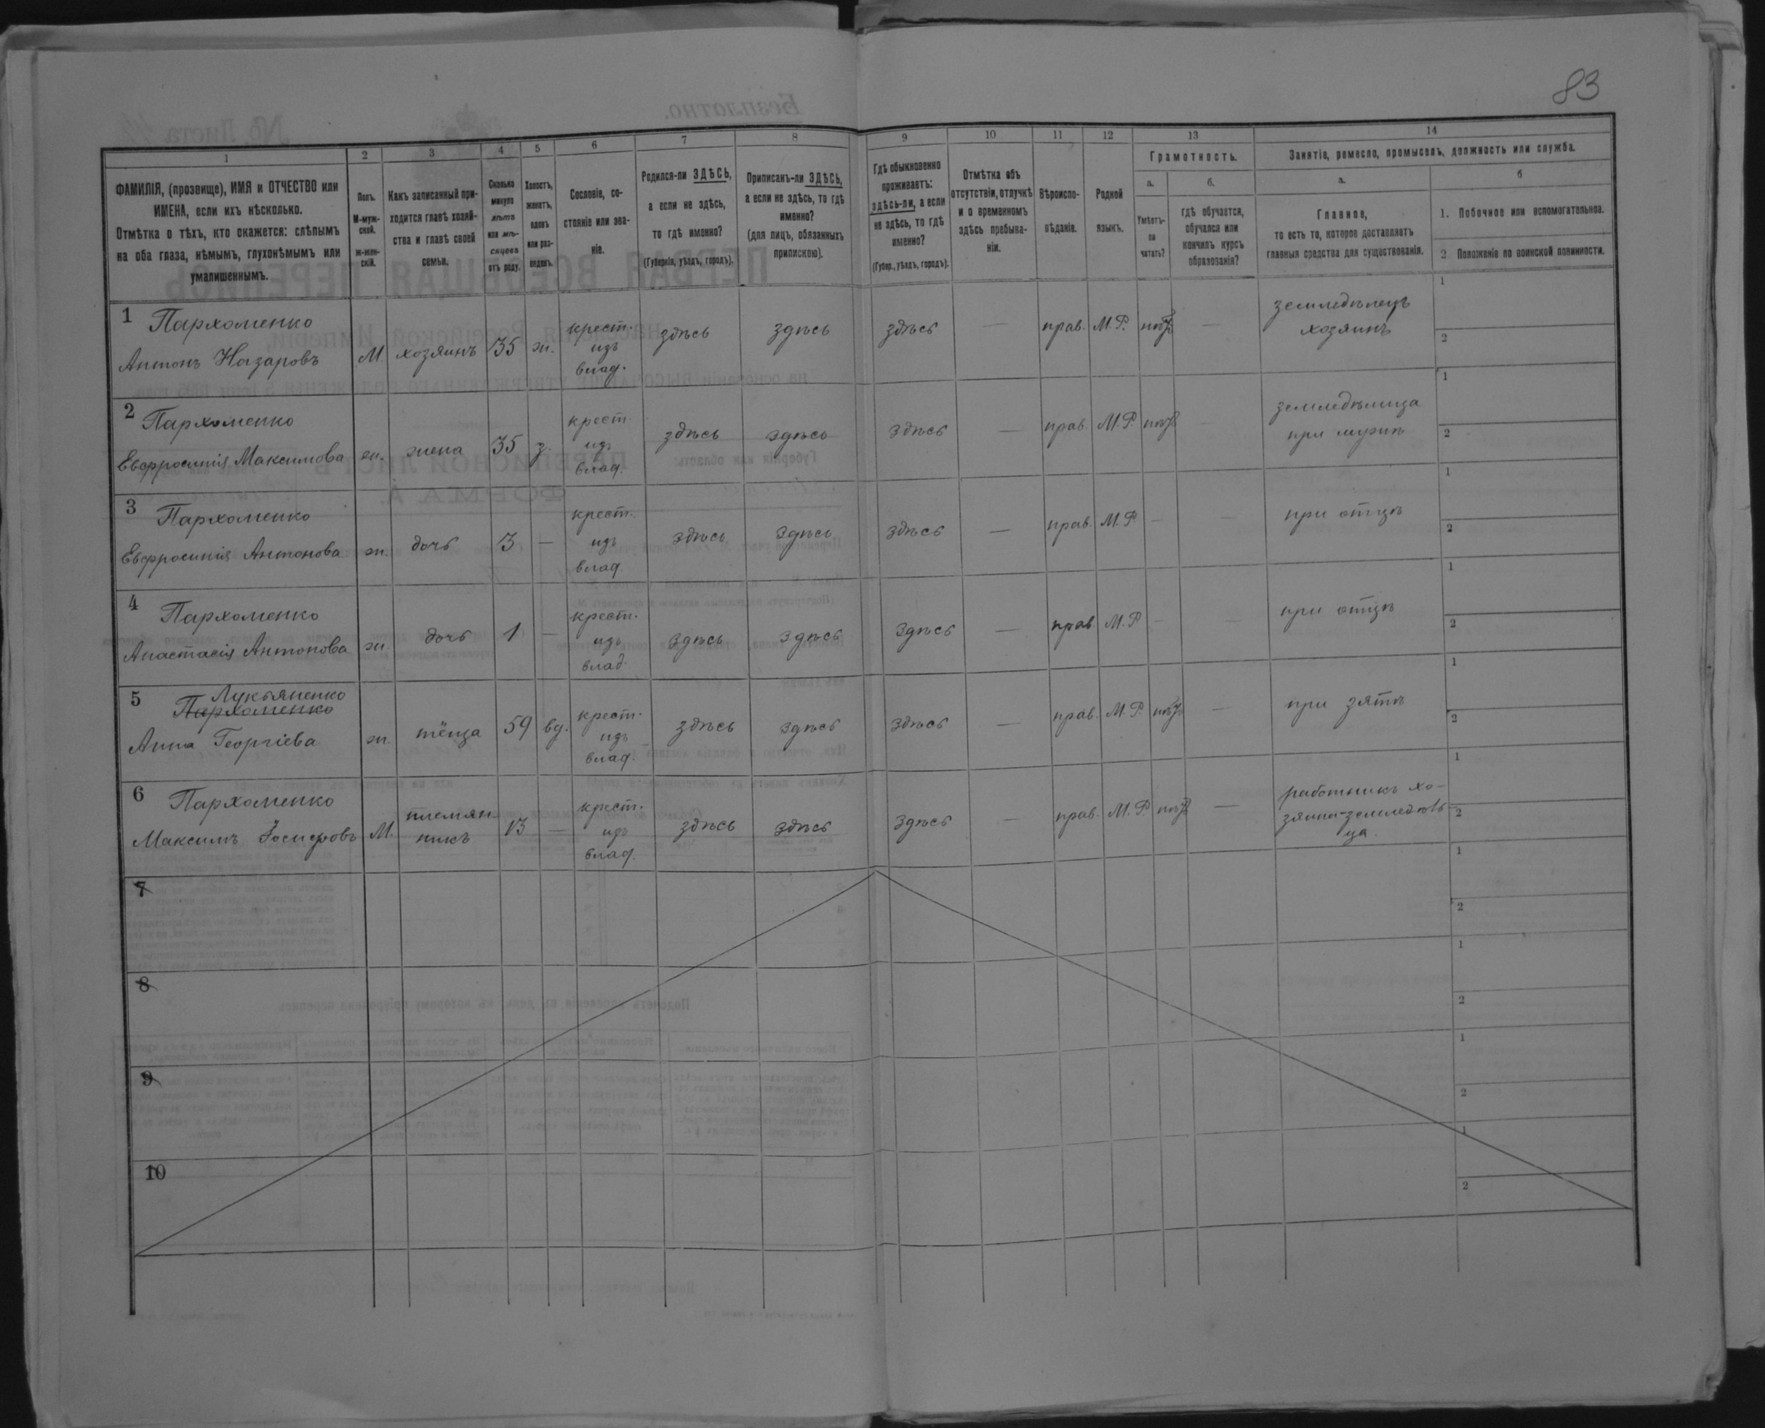 83
1
2
3
4
5
6
7
8
9
10
11
12
13
14
ФАМИЛІЯ, (прозвище), ИМЯ и ОТЧЕСТВО или
ИМЕНА, если ихъ нѣсколько.
Отмѣтка о тѣхъ, кто окажется: слѣпымъ
на оба глаза, нѣмымъ, глухонѣмымъ или
умалишеннымъ.
Полъ.
М-муж-
ской.
ж-жен-
скій.
Какъ записанный при-
ходится главѣ хозяй-
ства и главѣ своей
семьи.
Сколько
минуло
лѣтъ
или мѣ-
сяцевъ
отъ роду.
Холостъ,
женатъ,
вдовъ
или раз-
веденъ.
Сословіе, со-
стояніе или зва-
ніе.
Родился-ли ЗДѢСЬ,
а если не здѣсь,
то гдѣ именно?
(Губернія, уѣздъ, городъ).
Приписанъ-ли ЗДѢСЬ,
а если не здѣсь, то гдѣ
именно?
(для лицъ, обязанныхъ
припискою).
Гдѣ обыкновенно
проживаетъ:
здѣсь-ли, а если
не здѣсь, то гдѣ
именно?
(Губер., уѣздъ, городъ).
Отмѣтка объ
отсутствіи, отлучкѣ
и о временномъ
здѣсь пребыва-
ніи.
Вѣроиспо-
вѣданіе.
Родной
языкъ.
Грамотность.
а.
б.
Умѣетъ-
ли
читать?
гдѣ обучается,
обучался или
кончилъ курсъ
образованія?
Занятіе, ремесло, промыселъ, должность или служба.
а.
б
Главное,
то есть то, которое доставляетъ
главныя средства для существованія.
1. Побочное или вспомогательное.
2. Положеніе по воинской повинности.
1 Пархоменко
Антонъ Назаровъ М хозяинъ 35 ж. крест. изъ влад. здѣсь здѣсь здѣсь — прав. М.Р. нѣтъ — земледѣлецъ хозяинъ 1 2
2 Пархоменко
Евфросинія Максимова ж. жена 35 з крест. изъ влад. здѣсь здѣсь здѣсь — прав. М.Р. нѣтъ — земледѣлица при мужѣ 1 2
3 Пархоменко
Евфросинія Антонова ж. дочь 3 — крест. изъ влад. здѣсь здѣсь здѣсь — прав. М.Р. — — при отцѣ 1 2
4 Пархоменко
Анастасія Антонова ж. дочь 1 — крест. изъ влад. здѣсь здѣсь здѣсь — прав М.Р. — — при отцѣ 1 2
5 Лукьяненко
Пархоменко
Анна Георгіева ж. тёща 59 вд. крест. изъ влад. здѣсь здѣсь здѣсь — прав. М.Р. нѣтъ — при зятѣ 1 2
6 Пархоменко
Максимъ Іосифовъ М. племян-
никъ 13 — крест. изъ влад. здѣсь здѣсь здѣсь — прав. М.Р. нѣтъ — работникъ хо-
зяина-земледѣль
ца 1 2
7 1 2
8 1 2
9 1 2
10 1 2